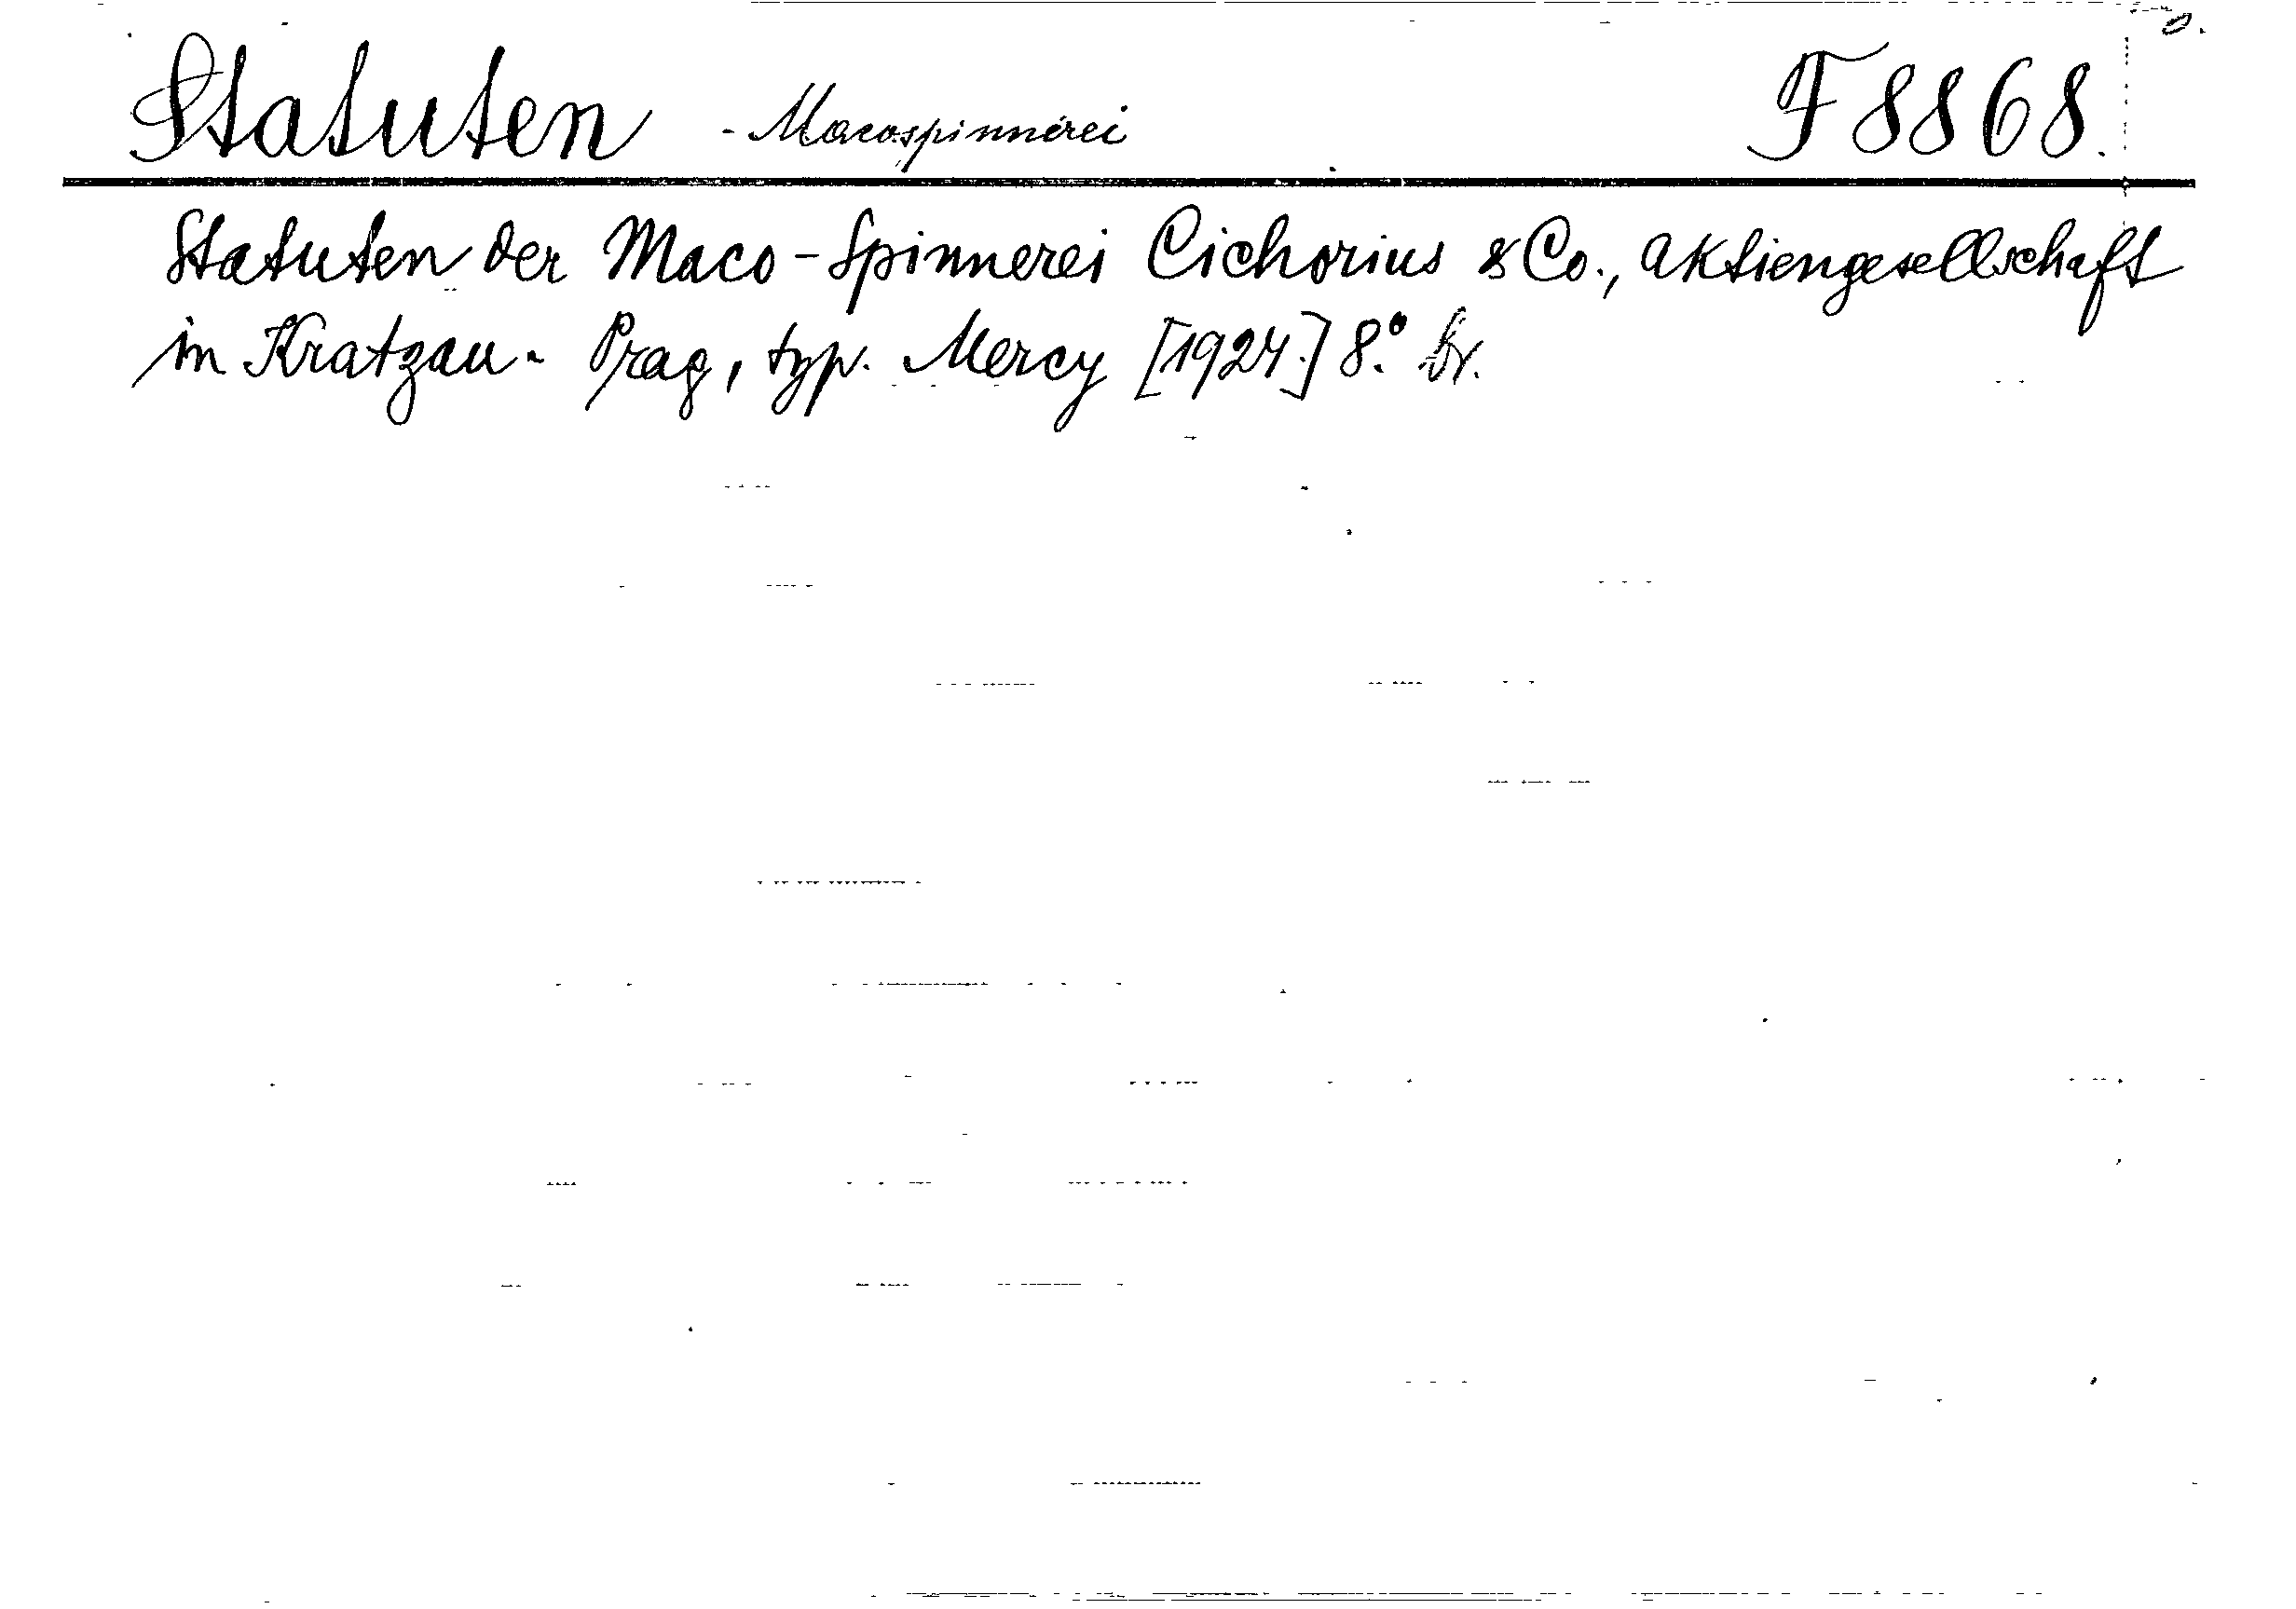 Statuten - Macospinnerei F 8868.
Statuten der Maco-Spinnerei Cichorius & Co., Aktiengesellschaft
in Kratzau. Prag, typ. Mercy [1924.] 8.° br.